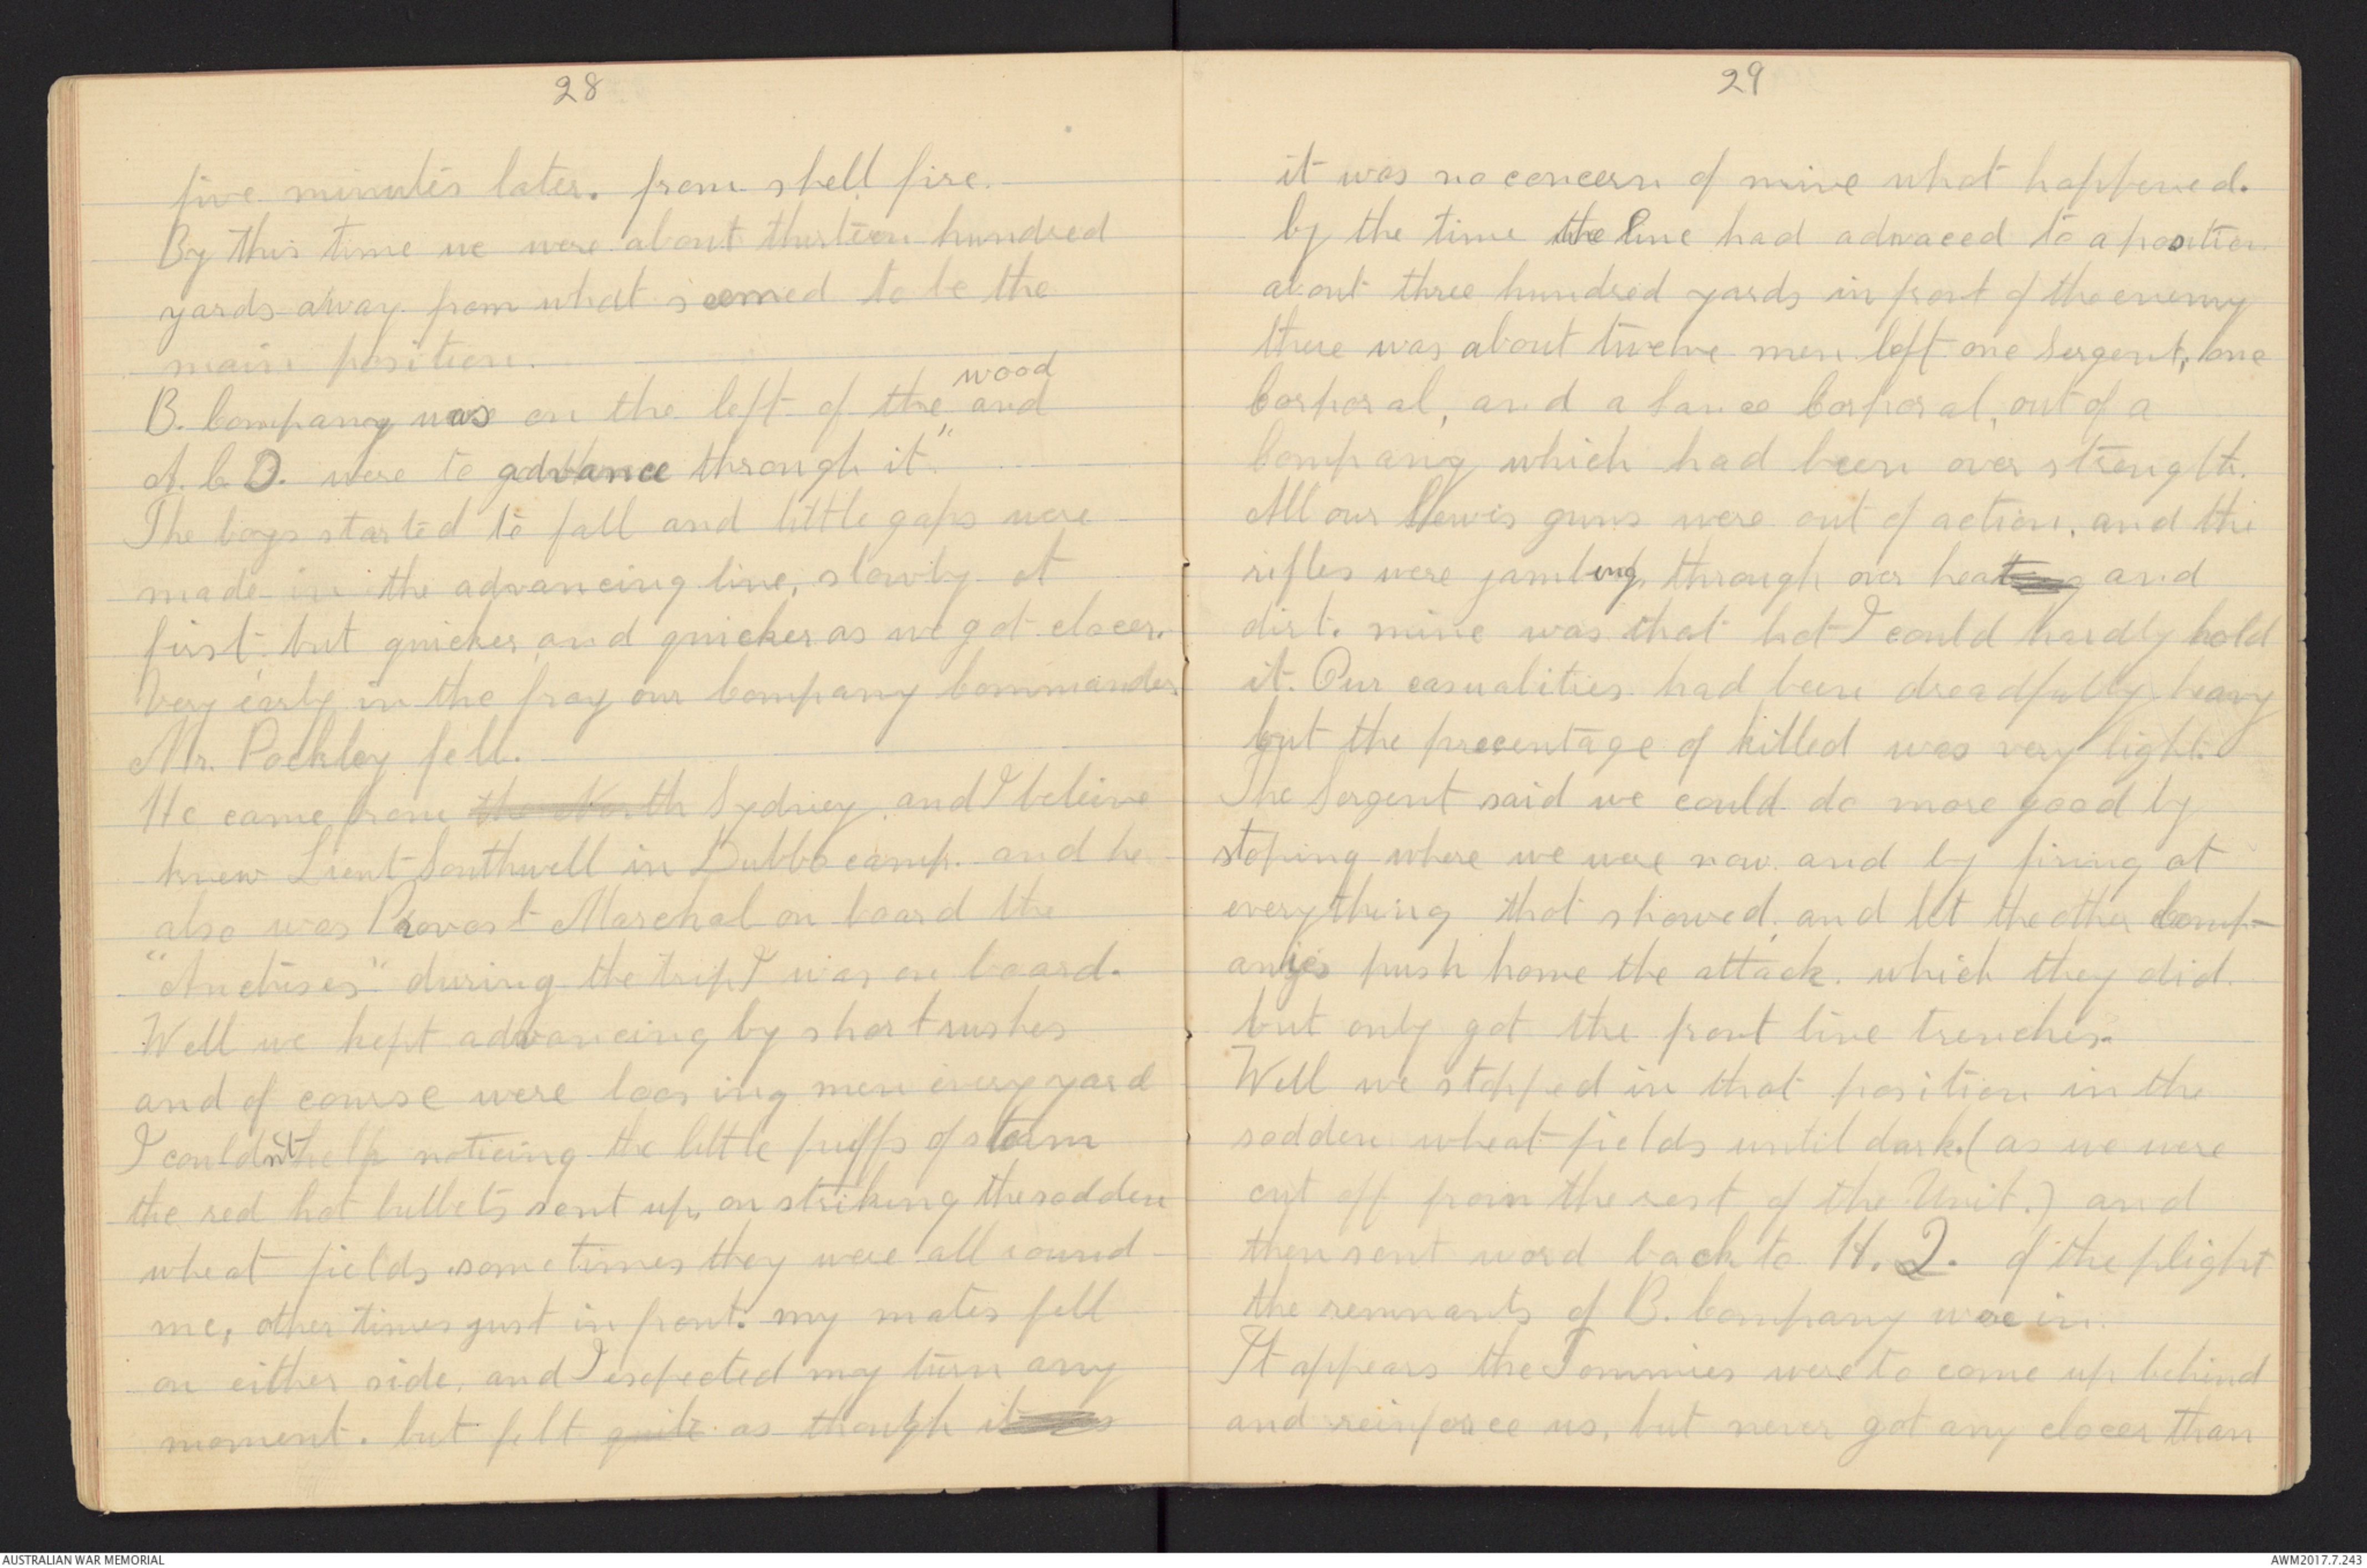 28
five minutes later. from shell fire.
By this time we were about thirteen hundred
yards away from what seemed to be the
main position.
wood
B. Company was on the left of the and
A. C. D. were to advance through it"
The boys started to fall and little gaps were
made in the advancing line, slowly at
first but quicker and quicker as we got closer.
Very early in the fray our Company Commander,
Mr. Pockley fell.
He came from the North Sydney. and I beleive
knew Lieut Southwell in Dubbo camp. and he
also was Provost Marchal on board the
"Anchises" during the trip I was on board.
Well we kept advancing by short rushes
and of course were loosing men every yard
I couldn't help noticing the little puffs of steam
the red hot bullets sent up, on striking the sodden
wheat fields sometimes they were all round
me, other times just in front. my mates fell
on either side, and I expected my turn any
moment. but felt quite as though it
29
it was no concern of mine what happened.
by the time the line had advaced to a position
about three hundred yards in front of the enemy
there was about twelve men left one Sergent, one
Corporal, and a Lance Corporal, out of a
Company which had been over strength.
All our Lewis guns were out of action, and the
rifles were jambing through over heat and
dirt. mine was that hot I could hardly hold
it. Our casualities had been dreadfully heavy
but the precentage of killed was very light.
The Sergent said we could do more good by
stoping where we were now. and by firing at
everything that showed, and let the other Comp-
anies push home the attack. which they did.
but only got the front line trenches.
Well we stopped in that position in the
sodden wheat fields until dark. (as we were
cut off from the rest of the Unit.) and
then sent word back to H.Q. of the plight
the remnants of B. Company was in.
It appears the Tommies were to come up behind
and reinforce us, but never got any closer than
AUSTRALIAN WAR MEMORIAL
AWM2017.7.243